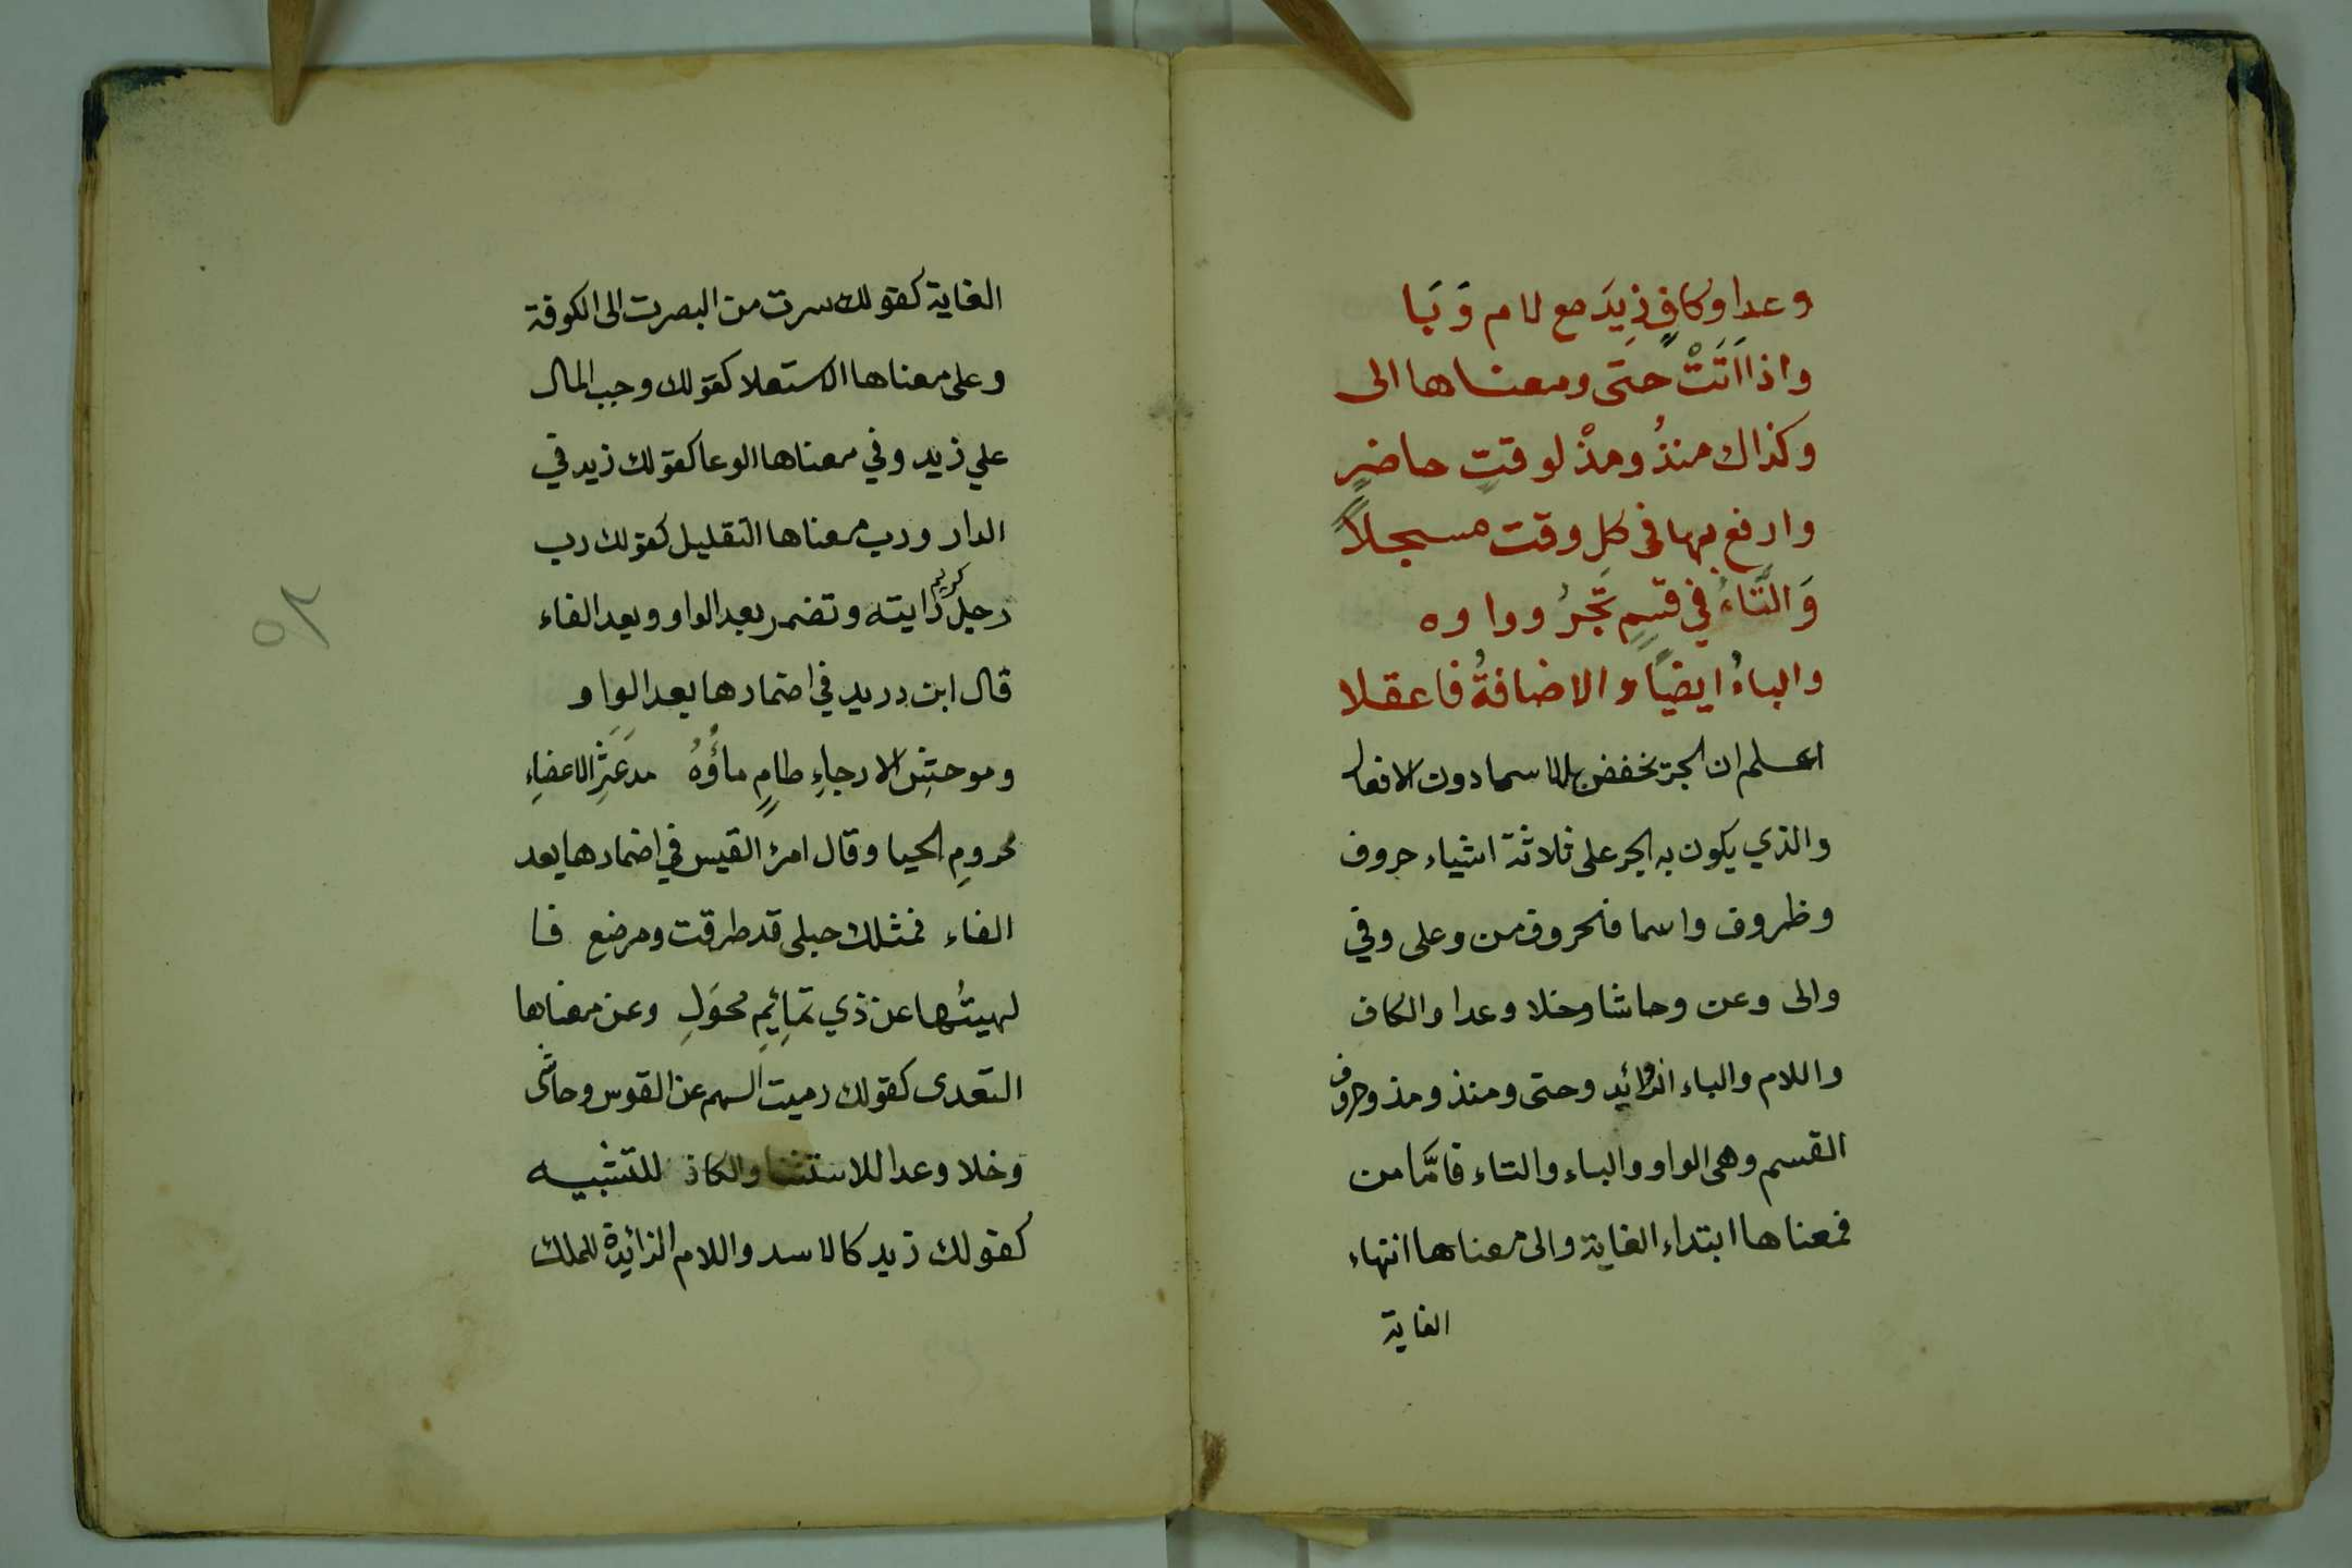 وعدا وكافٍ زِيدَ مع لام وَبَا
واذا اَتَتْ حتى ومعناها الى
وكذاك منذُ ومذْ لوقتٍ حاضرٍ
وارفع بها في كلِ وقت مسجلاً
وَالتَّاءُ في قسمٍ تَجُرُ وواوه
والباءُ ايضاً والاضافةُ فاعقلا
اعلم ان الجر تخفض به الاسما دون الافعال
والذي يكون به الجر على ثلاثة اشياء حروف
وظروف واسما فالحروف من وعلى وفي
والى وعن وحاشا وخلا وعدا والكاف
واللام والباء الزوائيد وحتى ومنذ ومذ وحروف
القسم وهى الواو والباء والتاء فامَّا من
فمعناها ابتداء الغاية والى معناها انتهاء
الغاية
الغاية كقولك سرت من البصرت الى الكوفة
وعلى معناها الاستعلا كقولك وجب المال
علي زيد وفي معناها الوعا كقولك زيد في
الدار ورب معناها التقليل كقولك رب
رجلٍ كريمٍ رايته وتضمر بعد الواو وبعد الفاء
قال ابن دريد في اضمارها بعد الواو
وموحشِ الارجاءِ طامٍ ماؤُهُ مدَعثَرِ الاعضاءِ
محرومِ الحيا وقال امرئ القيس في اضمارها بعد
الفاء فمثلك حبلى قد طرقت ومرضع فا
لهيتُها عن ذي تمائِيمِ محوَلِ وعن معناها
التعدى كقولك رميت السهم عن القوس وحاشى
وخلا وعدا للاستثنا والكاف للتشبيه
كقولك زيد كالاسد واللام الزائيدة للملك
٥٢